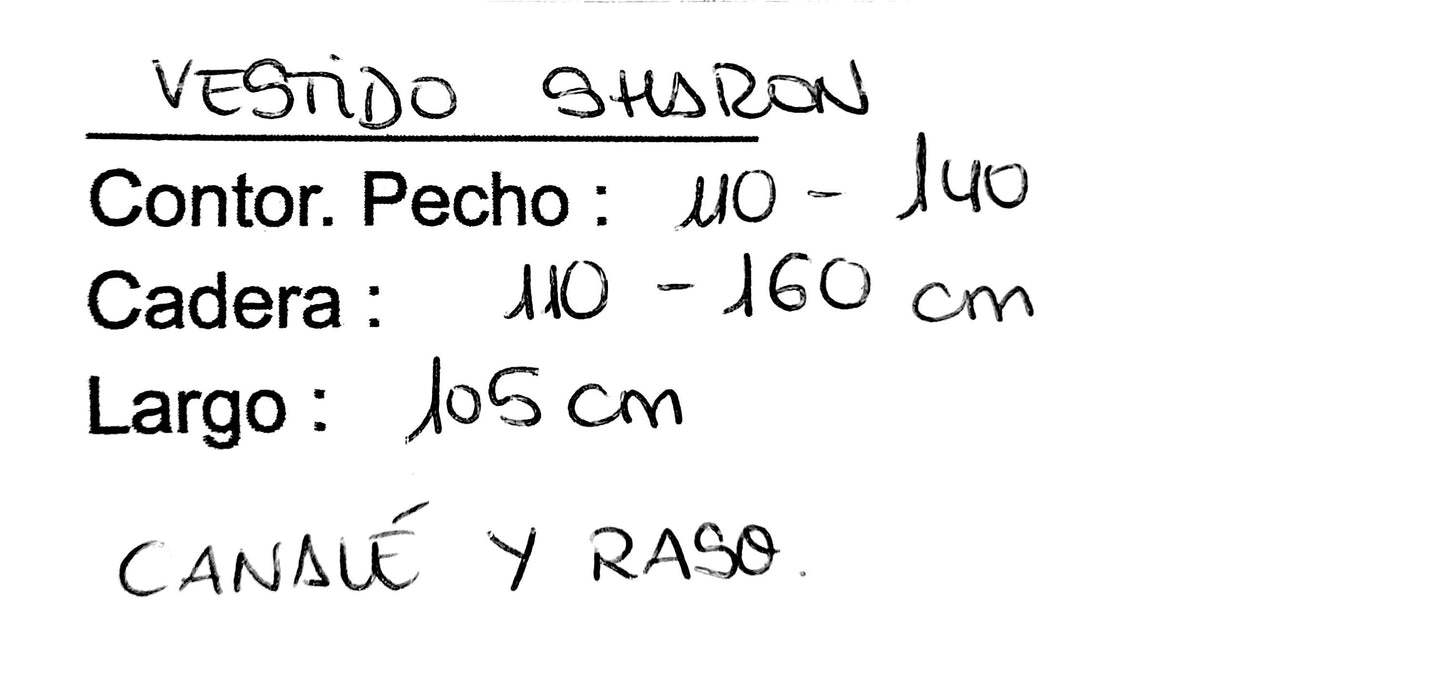 VESTiDO SHARON
Contor. Pecho : 110 - 140
Cadera : 110 - 160 cm
Largo : 105 cm
CANALÉ Y RASO.